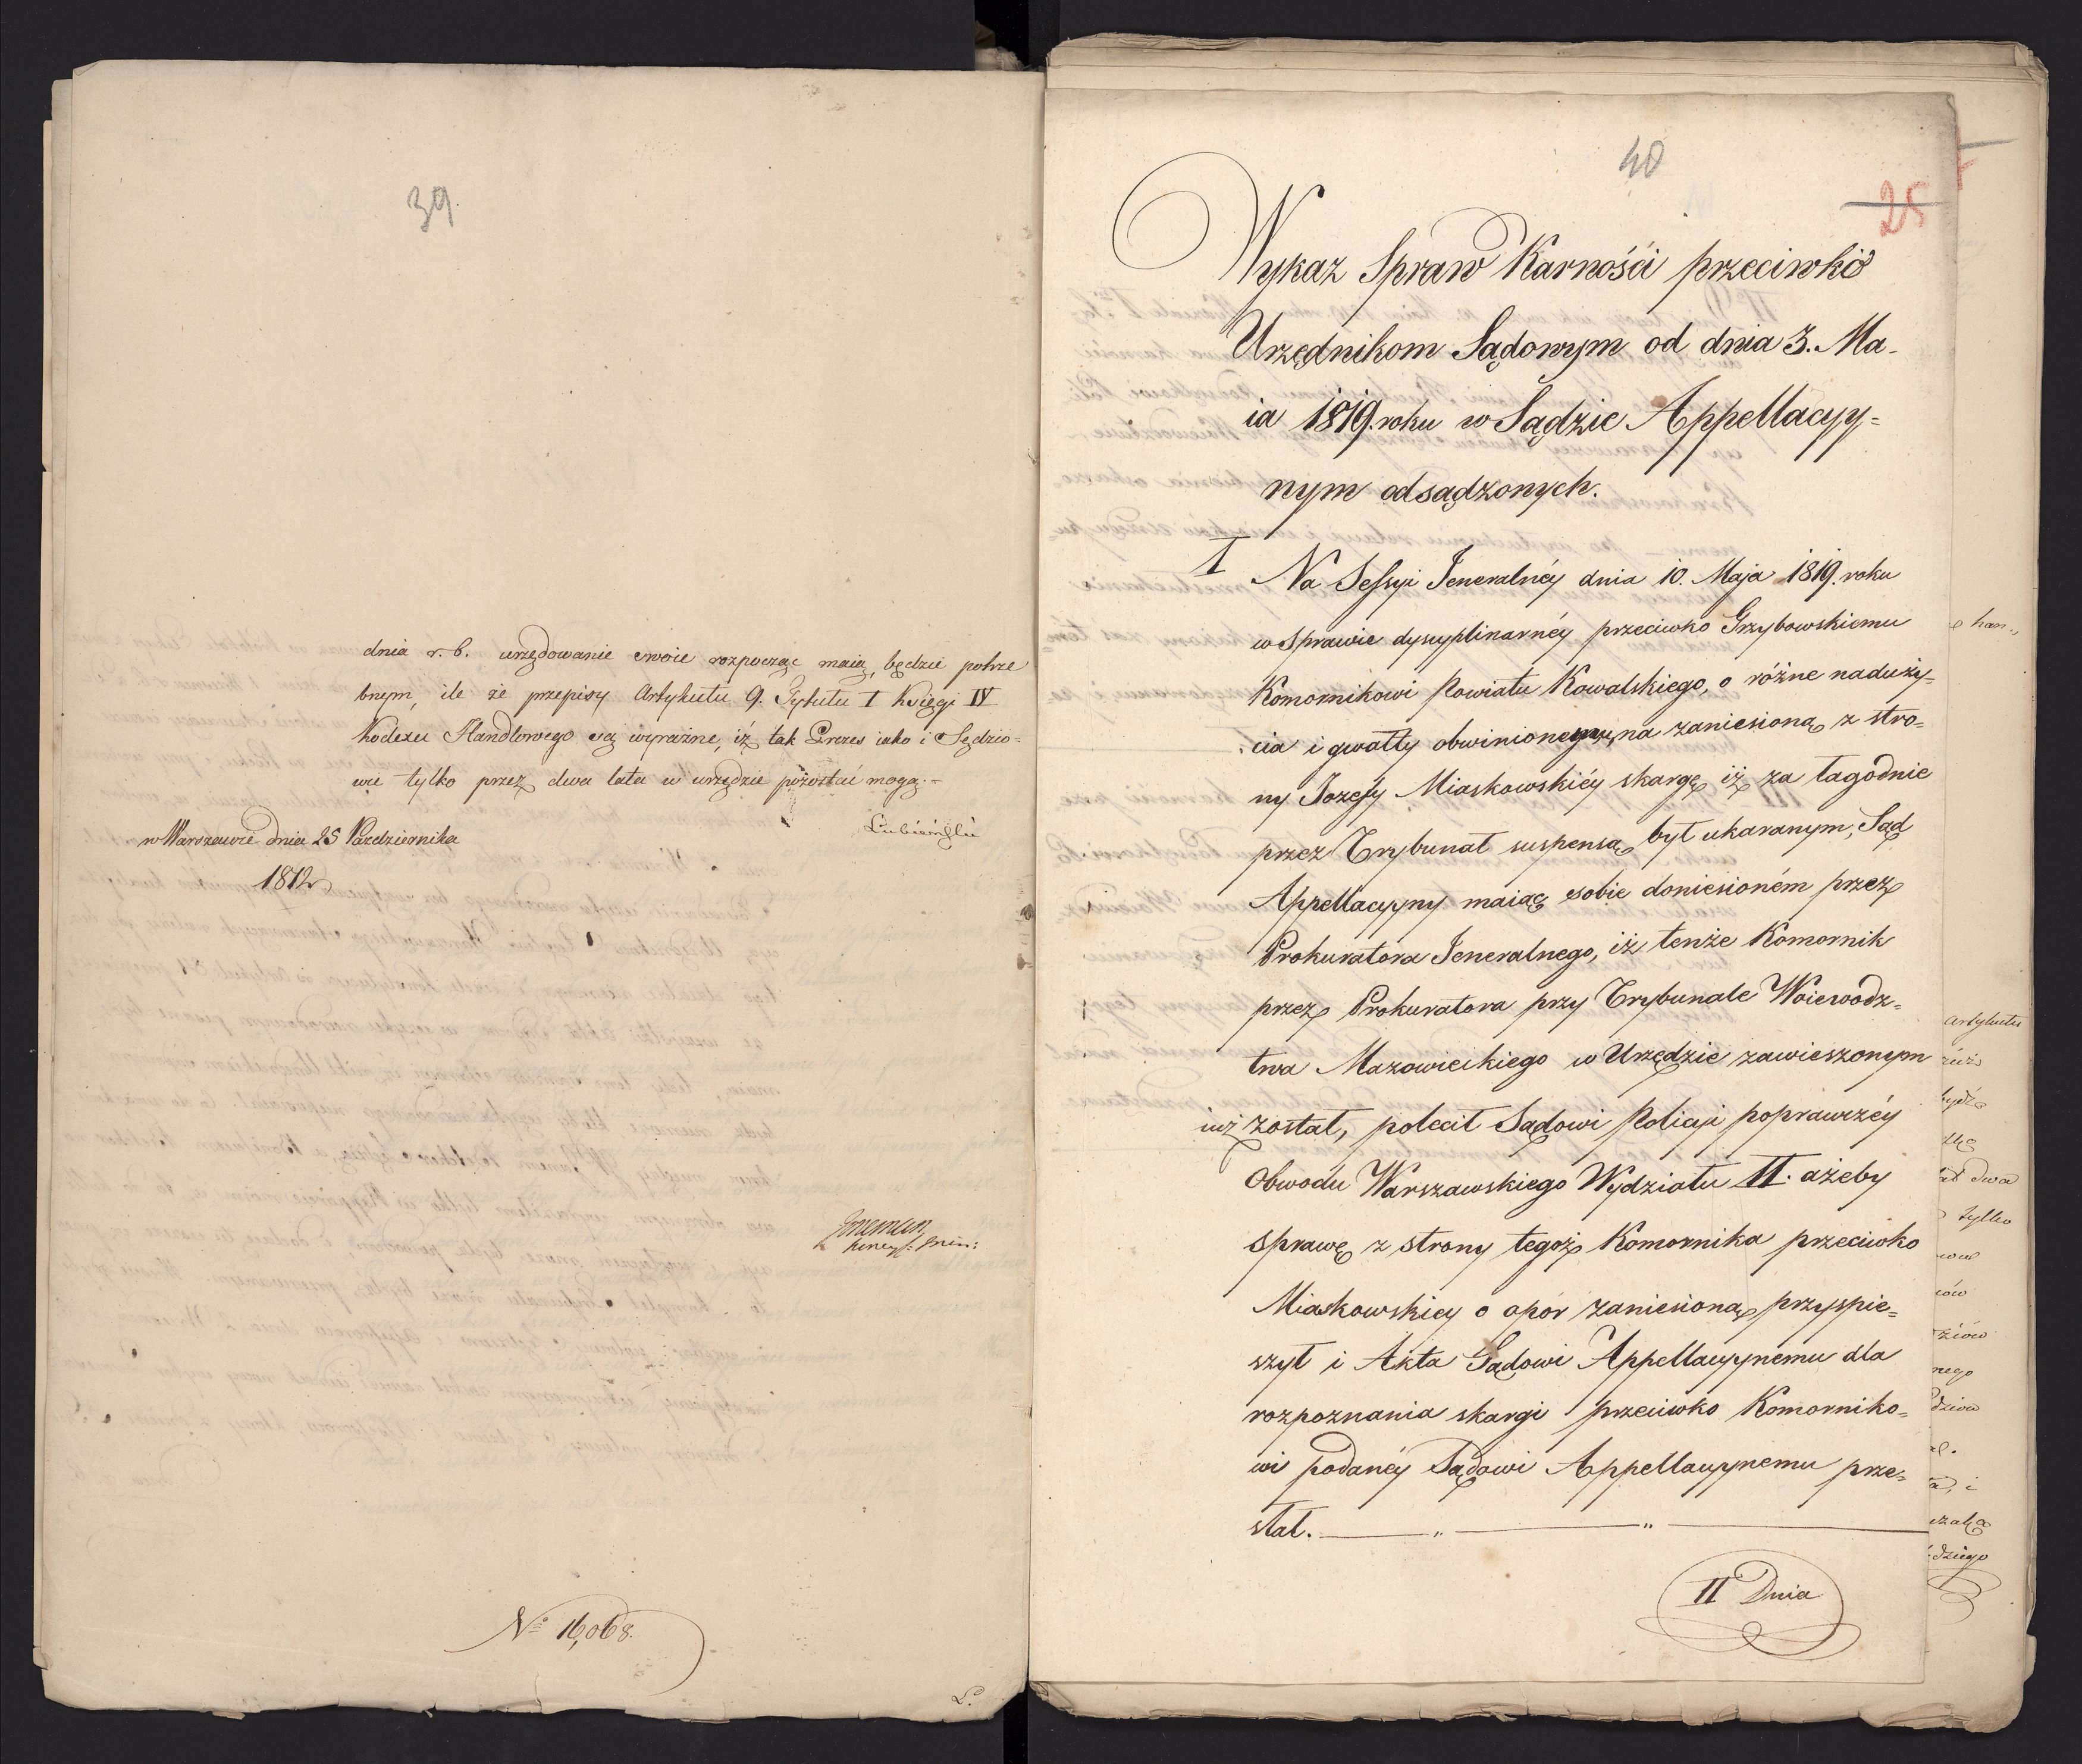 39.
dnia r. b. urzędowanie swoie rozpocząc maią, będzie potrze
bnym, ile że przepisy Artykułu 9. Tytułu I Księgi IV
Kodexu Handlowego są wyraźne, iż tak Prezes iako i Sędzio-
wie tylko przez dwa lata w urzędzie pozostać mogą.-
Lubieński
w Warszawie dnia 25 Października
1812
No 16,068.
40
25
Wykaz Spraw Karnośći przeciwko
Urzędnikom Sądowym od dnia 3. Ma-
ia 1819. roku w Sądzie Appellacyy=
nym odsądzonych.
I Na Sessyi Jeneralnéy dnia 10. Maja 1819. roku
w Sprawie dyscyplinarnéy przeciwko Grzybowskiemu
Komornikowi Powiatu Kowalskiego, o różne naduży=
cia i gwałty obwinionemu, na zaniesioną z stro=
ny Jozefy Miaskowskiéy skargę iż za łagodnie
przez Trybunał suspensą był ukaranym, Sąd
Appellacyyny maiąc sobie doniesioném przez
Prokuratora Jeneralnego, iż tenże Komornik
przez Prokuratora przy Trybunale Woiewodz=
twa Mazowieckiego w Urzędzie zawieszonym
iuż został, polecił Sądowi Policyi poprawczéy
Obwodu Warszawskiego Wydziału II. ażeby
sprawę z strony tegoż Komornika przeciwko
Miaskowskiey o opór zaniesioną przyspie=
szył i Akta Sądowi Appellacyynemu dla
rozpoznania skargi przeciwko Komorniko=
wi podanéy Sądowi Appellacyynemu prze=
słał.
II Dnia
Artykułu
dwa
tylko